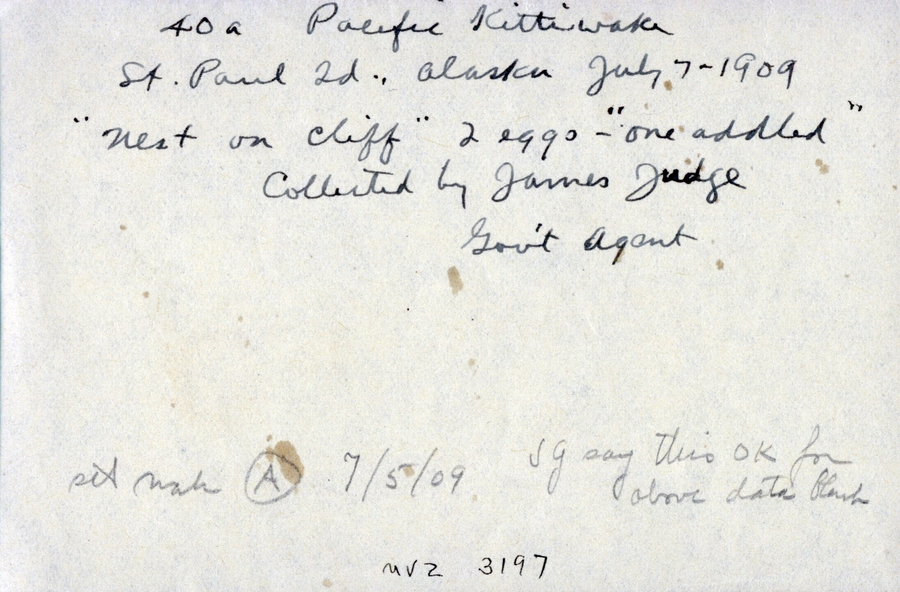 40a Pacific Kittiwake
St. Paul Id., Alaska July 7-1909
"Nest on cliff" 2 eggs - "one addled"
Collected by James Judge
Gov't Agent
set mark A 7/5/09
JG say this OK for
above data Blank
MVZ 3197